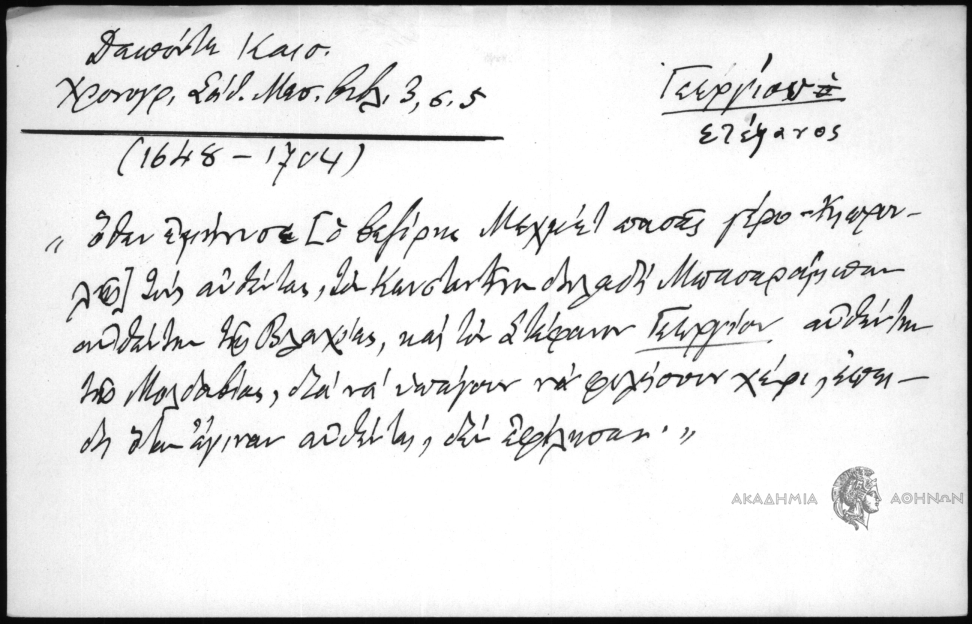 Δαπόντε Καισ.
Χρονογρ. Σάθ. Μεσ. Βιβλ. 3, σ. 5
(1648 – 1704)
Γεωργίου
Στέφανος
„ Ὅθεν ἐμήνυσε [ὁ βεζίρης Μεχμὲτ πασᾶς γέρο-Κιοπρου-
λῆς] τοὺς αὐθέντας, τὸν Κωνσταντῖνον δηλαδὴ Μπασαράμπαν
αὐθέντην τῆς Βλαχίας, καὶ τὸν Στέφανον Γεωργίου αὐθέντην
τῆς Μολδαβίας, διὰ νὰ ὑπάγουν νὰ φιλήσουν χέρι, ἐπει-
δὴ ὅταν ἔγιναν αὐθέντες, δὲν ἐφίλησαν. "
ΑΚΑΔΗΜΙΑ ΑΘΗΝΩΝ